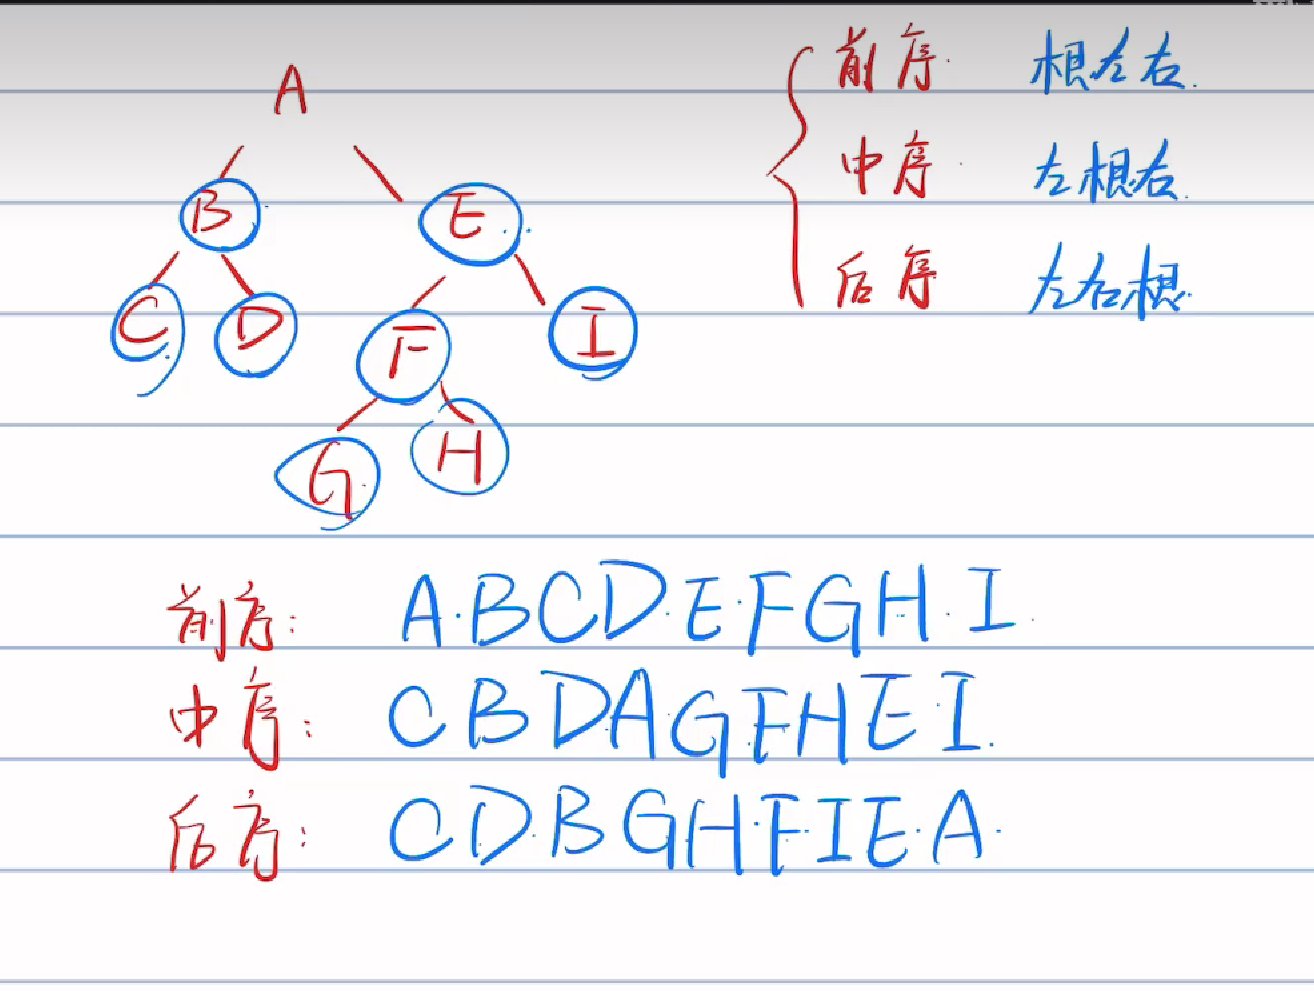 A
B E
C D F I
G H
前序 根左右.
中序 左根右.
后序 左右根.
前序: A B C D E F G H I
中序: C B D A G F H E I
后序: C D B G H F I E A